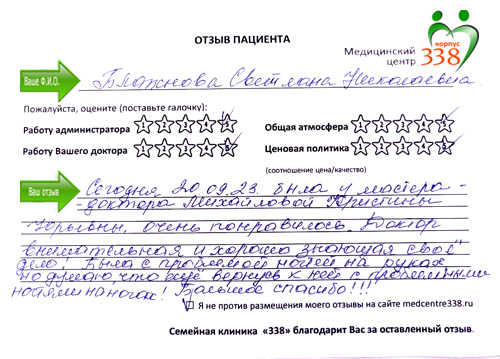 ОТЗЫВ ПАЦИЕНТА
Медицинский центр
корпус 338
Ваше Ф.И.О.
Блажнова Светлана Николаевна
Пожалуйста, оцените (поставьте галочку):
Работу администратора 1 2 3 4 5
Общая атмосфера 1 2 3 4 5
Работу Вашего доктора 1 2 3 4 5
Ценовая политика 1 2 3 4 5
(соотношение цена/качество)
Ваш отзыв
Сегодня 20.09.23. была у мастера-
-доктора Михайловой Кристины
Юрьевны, очень понравилось. Доктор
внимательная и хорошо знающая своё
дело! Была с проблемой ногтей на руках
но думаю, что ещё вернусь к ней с проблемными
ногтями на ногах! Большое спасибо!!!
Я не против размещения моего отзывы на сайте medcentre338.ru
Семейная клиника «338» благодарит Вас за оставленный отзыв.